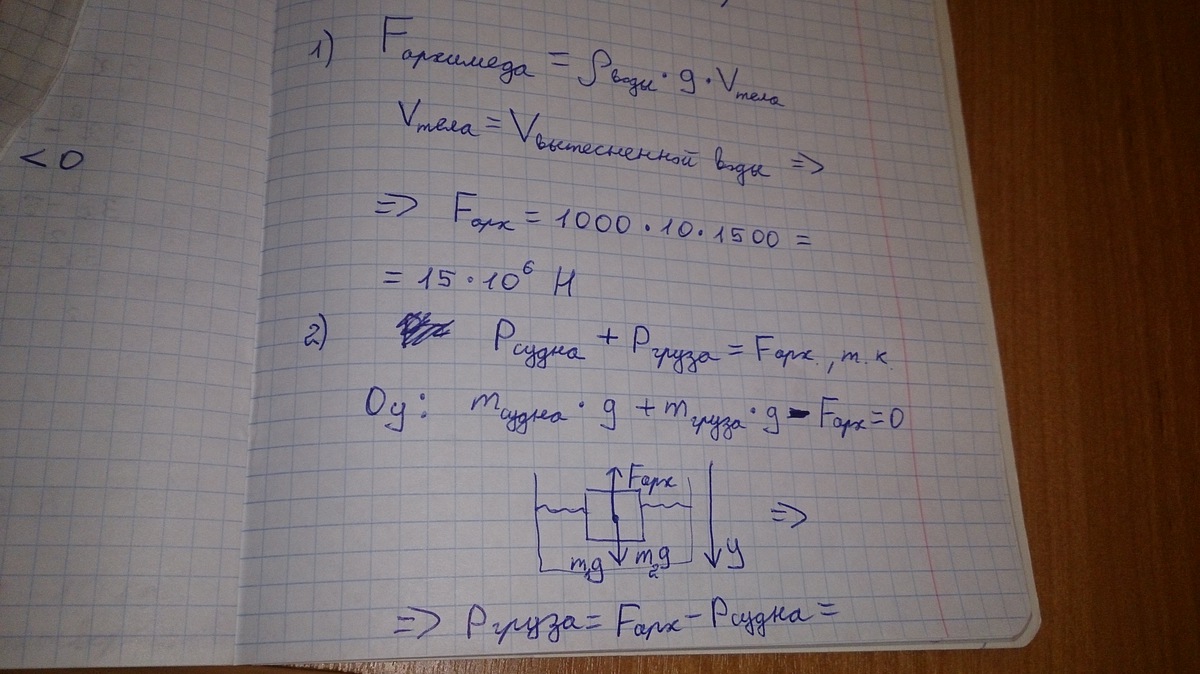 < 0
1) Fархимеда = ρводы · g · Vтела
Vтела = Vвытесненной воды =>
=> Fарх = 1000 · 10 · 1500 =
= 15 · 10⁶ Н
2) Pсудна + Pгруза = Fарх., т. к.
Оу: mсудна · g + mгруза · g - Fарх = 0
Fарх
=>
m₁g m₂g y
=> Pгруза = Fарх - Pсудна =